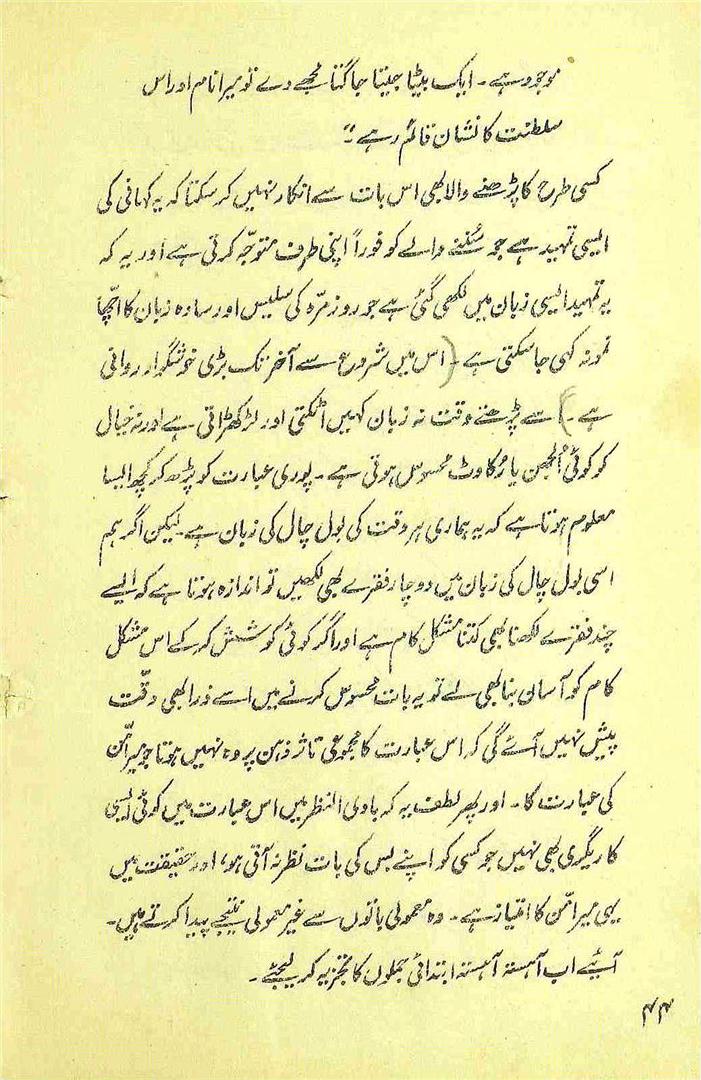 موجود ہے۔ ایک بیٹا جیتا جاگتا مجھے دے تو میرا نام اور اس
سلطنت کا نشان قائم رہے"
کسی طرح کا پڑھنے والا بھی اس بات سے انکار نہیں کر سکتا کہ یہ کہانی کی
ایسی تمہید ہے جو سُننے والے کو فوراً اپنی طرف متوجّہ کرتی ہے اور یہ کہ
یہ تمہید ایسی زبان میں لکھی گئی ہے جو روزمرّہ کی سلیس اور سادہ زبان کا اچّھا
نمونہ کہی جا سکتی ہے (اس میں شروع سے آخر تک بڑی خوشگوار روانی
ہے۔) اسے پڑھتے وقت نہ زبان کہیں اٹکتی اور لڑکھڑاتی ہے اور نہ خیال
کو کوئی اُلجھن یا رُکاوٹ محسوس ہوتی ہے۔ پوری عبارت کو پڑھ کر کچھ ایسا
معلوم ہوتا ہے کہ یہ ہماری ہر وقت کی بول چال کی زبان ہے۔ لیکن اگر ہم
اسی بول چال کی زبان میں دو چار فقرے بھی لکھیں تو اندازہ ہوتا ہے کہ ایسے
چند فقرے لکھنا بھی کتنا مشکل کام ہے اور اگر کوئی کوشش کر کے اس مشکل
کام کو آسان بنا بھی لے تو یہ بات محسوس کرنے میں اسے ذرا بھی دقّت
پیش نہیں آئے گی کہ اس عبارت کا مجموعی تاثر ذہن پر وہ نہیں ہوتا جو میرامّن
کی عبارت کا۔ اور پھر لطف یہ کہ بادی النظر میں اس عبارت میں کوئی ایسی
کاریگری بھی نہیں جو کسی کو اپنے بس کی بات نظر نہ آتی ہو، اور حقیقت میں
یہی میرامّن کا امتیاز ہے۔ وہ معمولی باتوں سے غیر معمولی نتیجے پیدا کرتے ہیں۔
آئیے اب آہستہ آہستہ ابتدائی جملوں کا تجزیہ کر لیجئے۔
۴۴